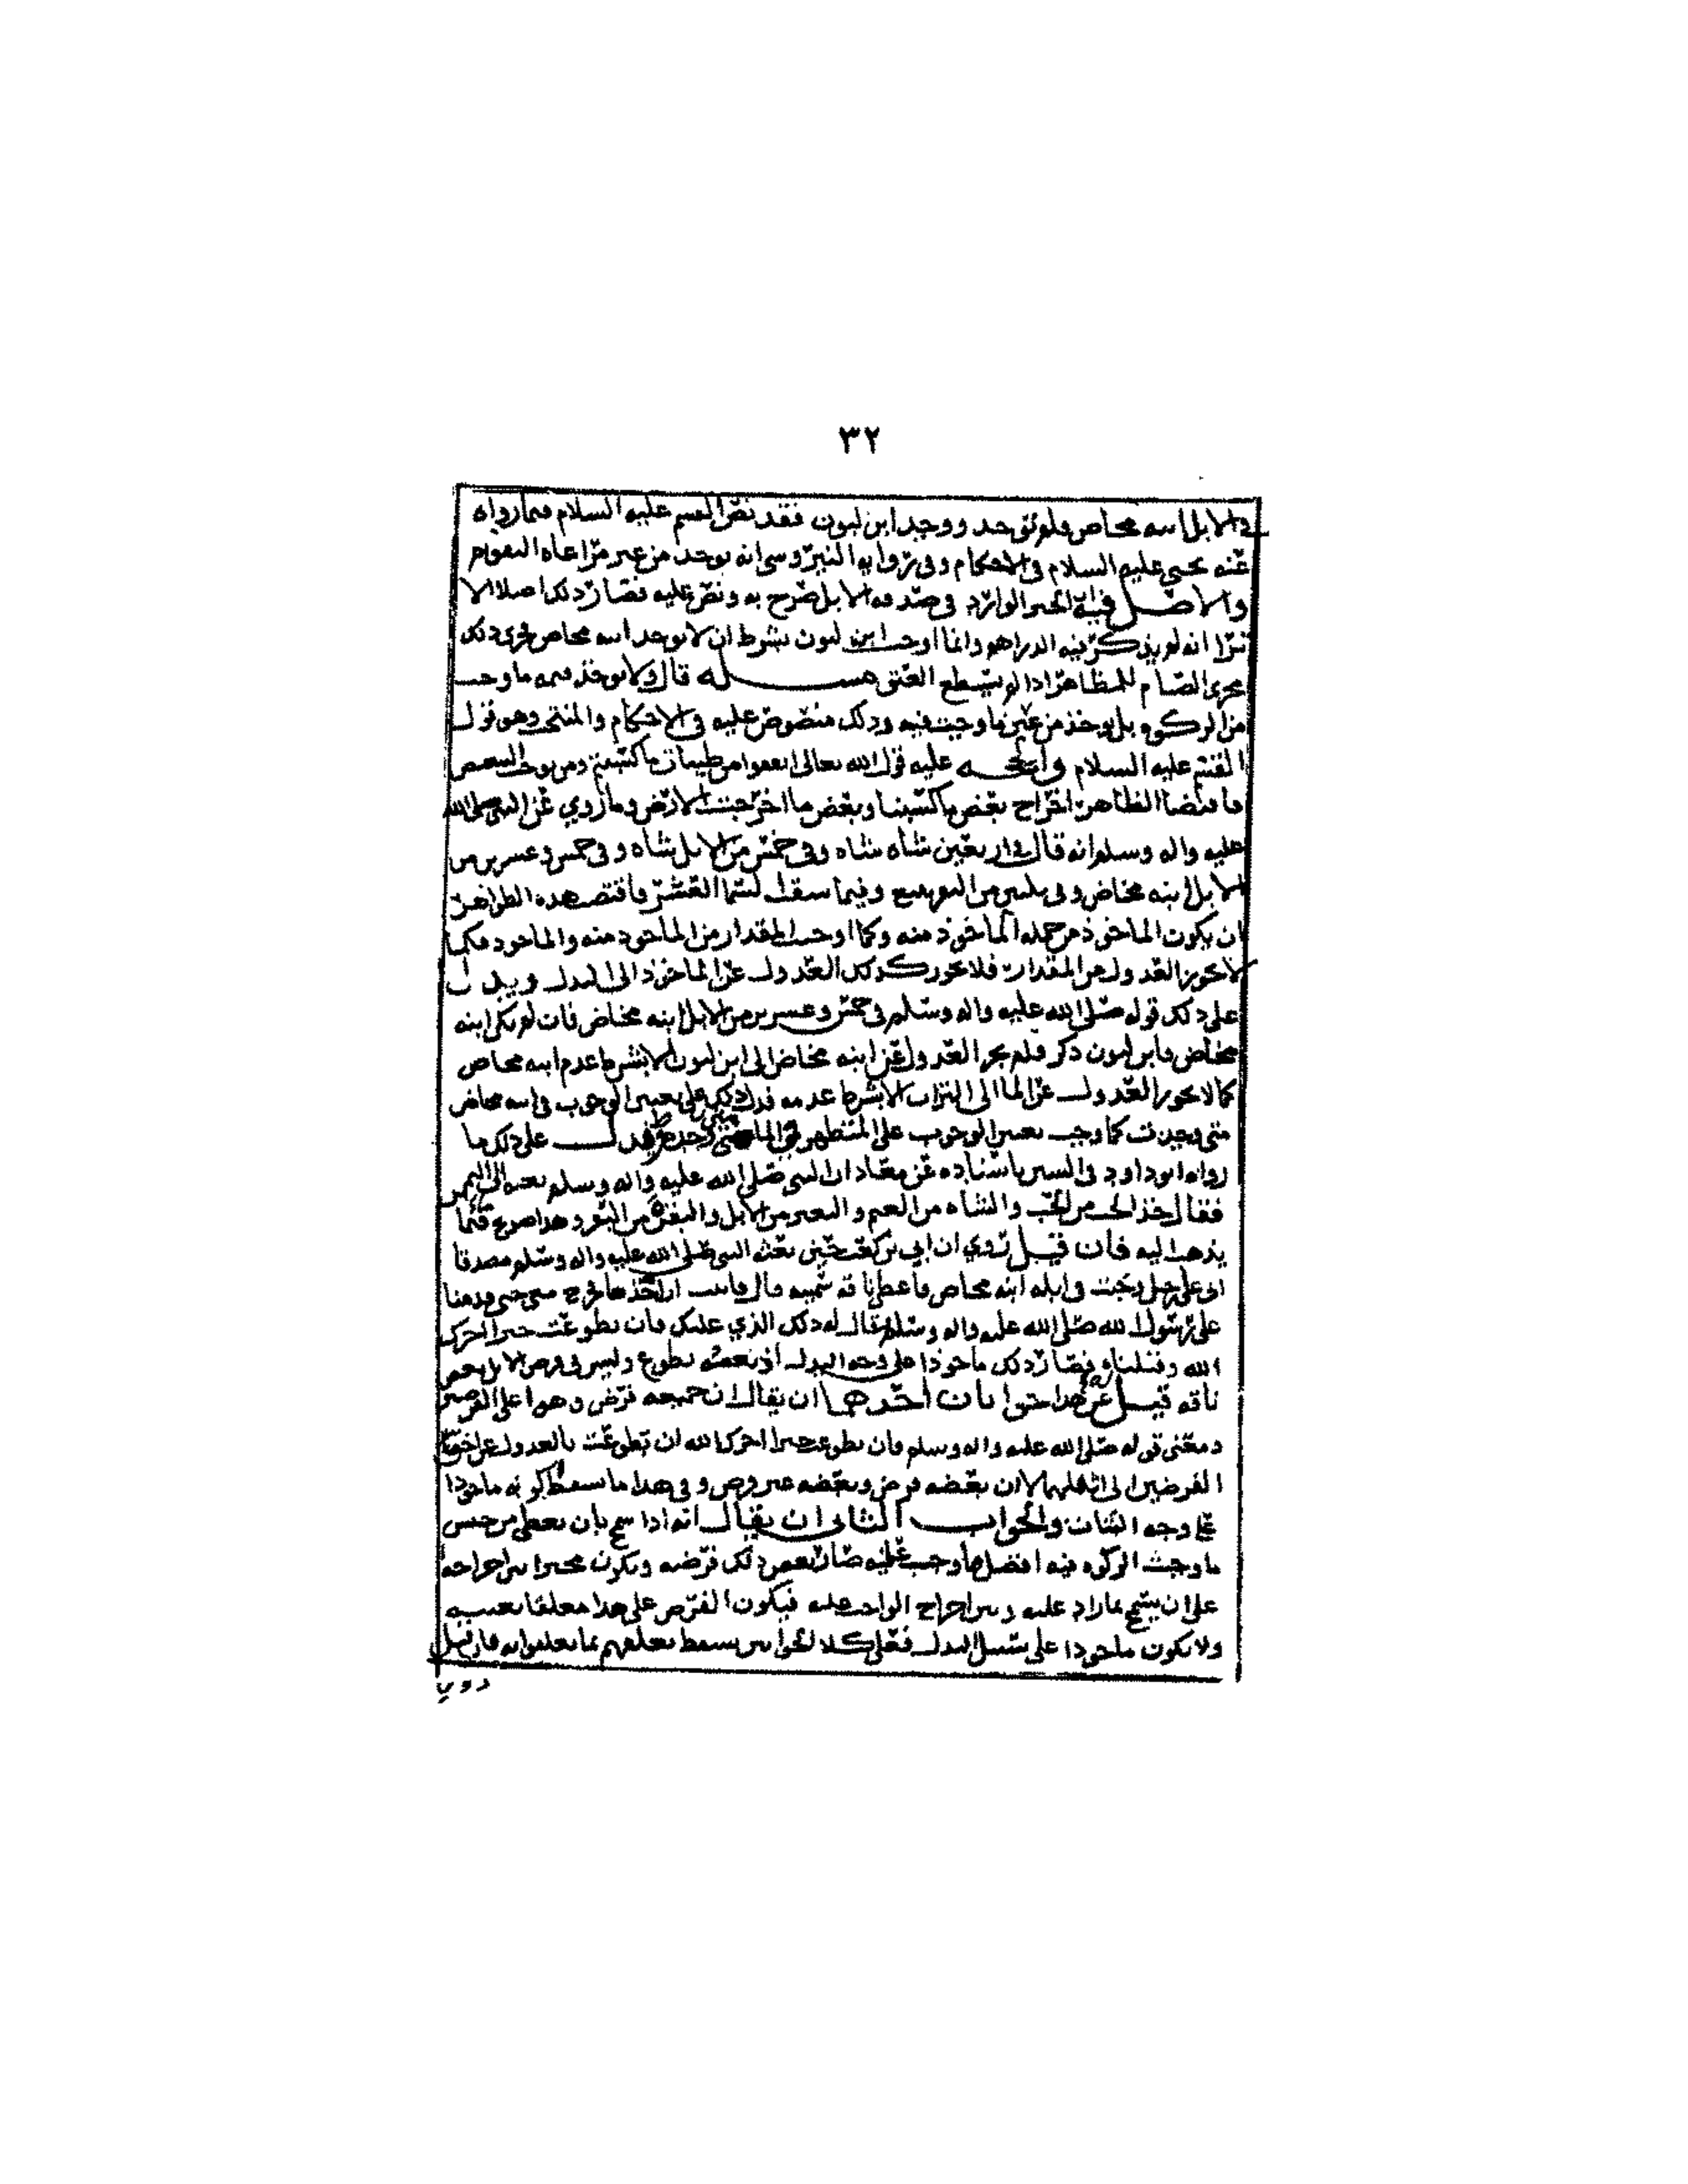 ٣٢
في الابل ابنه مخاض فلم توجد ووجد ابن لبون فقد نص القسم عليه السلام فيما رواه
عنه يحيى عليه السلام في الاحكام وفي رواية النيروسي انه يوخذ من غير مراعاه التقويم
والاصل فيه الخبر الوارد في صدقه الابل صرح به ونص عليه فصار ذلك اصلا الا
ترا انه لم يذكر فيه الدراهم وانما اوجب ابن لبون بشرط ان لا يوجد ابنه مخاض فجرى ذلك
مجرى الصيام للمظاهر اذا لم يستطع العتق مسـله قال ولا يوخذ قيمه ما وجب
من الزكوه بل يوخذ من عين ما وجبت فيه وذلك منصوص عليه في الاحكام والمنتخب وهو قول
القسم عليه السلام والحجه عليه قول الله تعالى انفقوا من طيبات ما كسبتم ومن توجب التبعيض
فاقتضا الظاهر اخراج بعض ما كسبنا وبعض ما اخرجت الارض وما روي عن النبي صلى الله
عليه واله وسلم انه قال في اربعين شاه شاه وفي خمس من الابل شاه وفي خمس وعسرين من
الابل ابنه مخاض وفي ثلثين من البقر تبيع وفيما سقت السما العشر فاقتضت هذه الظواهر
ان يكون الماخوذ من جمله الماخوذ منه وكما اوجب المقدار من الماخوذ منه والماخوذ فكما
لا يجوز العدول من المقدار فلا يجوز كذلك العدول عن الماخوذ الى البدل ويدل
على ذلك قوله صلى الله عليه واله وسلم في خمس وعسرين من الابل ابنه مخاض فان لم يكن ابنه
مخاض فابن لبون ذكر فلم يجز العدول عن ابنه مخاض الى ابن لبون الا بشرط عدم ابنه مخاض
كما لا يجوز العدول عن الما الى التراب الا بشرط عدمه فدل ذلك على تعيين الوجوب في ابنه مخاض
متى وجدت كما وجب تعيين الوجوب على المتطهر في الما متى وجده ويدل على ذلك ما
رواه ابو داود في السنن باسناده عن معاذ ان النبي صلى الله عليه واله وسلم بعثه الى اليمن
فقال خذ الحب من الحب والشاه من الغنم والبعير من الابل والبقره من البقر وهذا صريح فيما
يذهب اليه فان قيـل روي ان ابي بن كعب حين بعثه النبي صلى الله عليه واله وسلم مصدقا
اتى على رجل وجبت في ابله ابنه مخاض فاعطى ناقه سمينه قال فابيت ان اخذها فخرج معي حتى قدمنا
على رسول الله صلى الله عليه واله وسلم فقال له ذلك الذي عليك فان تطوعت خيرا اجرك
الله وقبلناه فصار ذلك ماخوذا على وجه البدل او بعضه تطوع وليس في فرض الابل بعض
ناقه قيـل له عن هذا جوابان احدهما ان يقال ان جميعه فرض وهو اعلى الفرضين
ومعنى قوله صلى الله عليه واله وسلم فان تطوعت خيرا اجرك الله ان تطوعت بالعدول عن اخف
الفرضين الى اثقلهما لا ان بعضه فرض وبعضه غير فرض وفي هذا ما يسقط كونه ماخوذا
على وجه البدل والجواب الثاني ان يقال انه اذا سمح بان يعطي من جنس
ما وجبت الزكوه فيه افضل مما وجب عليه صار بعض ذلك فرضه ويكون مخيرا بين اخراجه
على ان يسمح بما زاد عليه وبين اخراج الواجب عليه فيكون الفرض على هذا معلقا بعينه
ولا يكون ماخوذا على سبيل البدل فعلى كلا الجوابين يسقط تعلقهم بما تعلقوا به فان قيل
روي